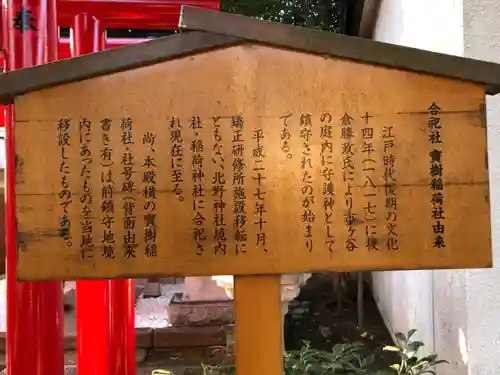 合祀社 寳樹稲荷社由来
江戸時代後期の文化
十四年(一八一七)に後
倉勝政氏により市ヶ谷
の庭内に守護神として
鎮守されたのが始まり
である。
平成二十七年十月、
矯正研修所施設移転に
ともない、北野神社境内
社・稲荷神社に合祀さ
れ現在に至る。
尚、本殿横の寳樹稲
荷社・社号碑(背面由来
書き有)は前鎮守地境
内にあったものを当地に
移設したものである。
奉